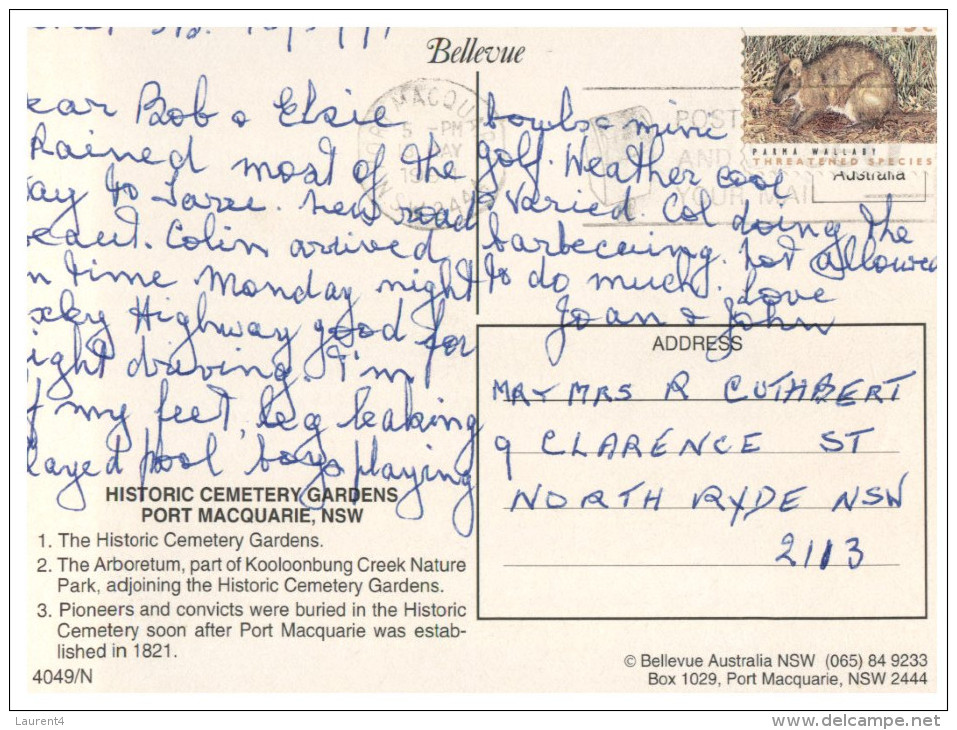 Bellevue
ear Bob & Elsie
Rained most of the
ay to Taree. New road
eaut. Colin arrived
n time Monday night
xley Highway good for
ight driving. I'm
f my feet, leg leaking
layed pool boys playing
bowls & mini
golf. Weather cool
& Varied. Col doing the
barbecuing. Not allowed
to do much. Love
Joan & John
PARMA WALLABY
THREATENED SPECIES
Australia
PORT MACQUARIE
5 - PM
MAY
N.S.W. 2444
POST
AND
YOUR MAIL
ADDRESS
MR & MRS R CUTHBERT
9 CLARENCE ST
NORTH RYDE NSW
2113
HISTORIC CEMETERY GARDENS
PORT MACQUARIE, NSW
1. The Historic Cemetery Gardens.
2. The Arboretum, part of Kooloonbung Creek Nature
Park, adjoining the Historic Cemetery Gardens.
3. Pioneers and convicts were buried in the Historic
Cemetery soon after Port Macquarie was estab-
lished in 1821.
4049/N
© Bellevue Australia NSW (065) 84 9233
Box 1029, Port Macquarie, NSW 2444
Laurent4
www.delcampe.net